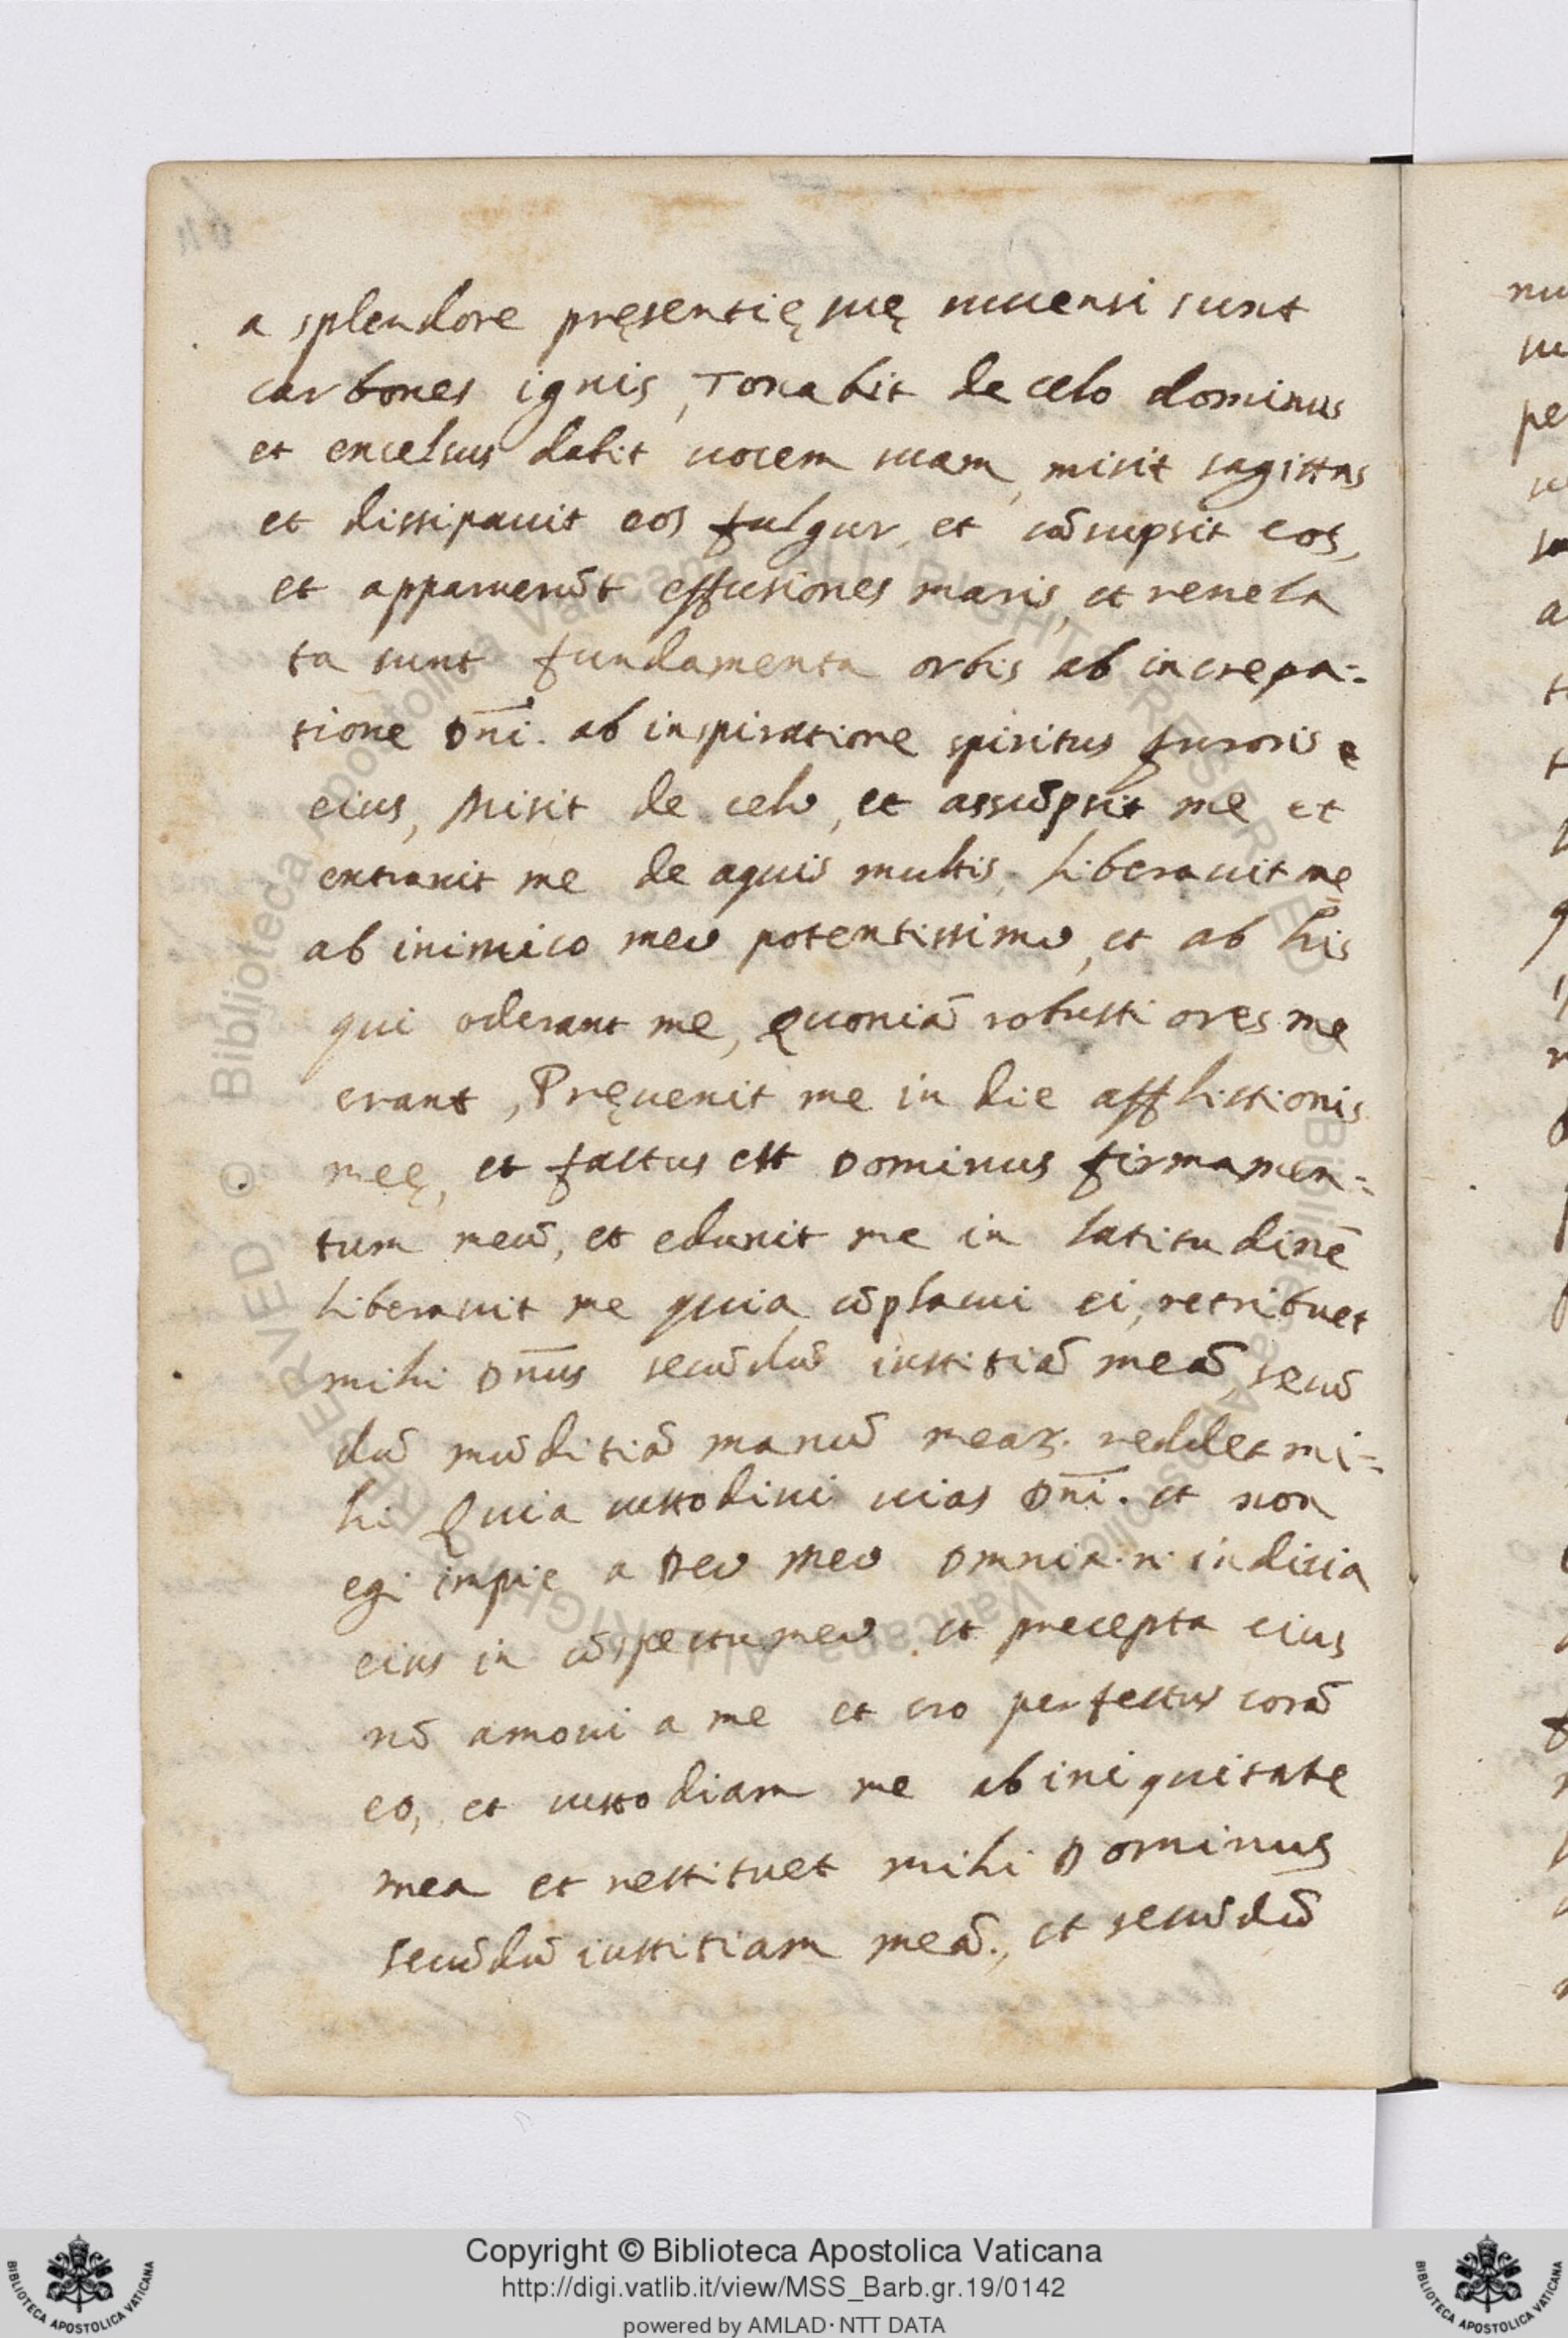 a splendore pręsentię suę succensi sunt
carbones ignis, Tonabit de celo dominus
et excelsus dabit uocem suam, misit sagittas
et dissipauit eos fulgur, et cōsupsit eos,
et apparuerūt effusiones maris, et reuela
ta sunt fundamenta orbis ab increpa-
tione Dn̄i. ab inspiratione spiritus furoris
eius, Misit de celo, et assūpsit me et
extraxit me de aquis multis, Liberauit me
ab inimico meo potentissimo, et ab his
qui oderant me, Quoniā robusti ores me
erant, Pręuenit me in die afflictionis
meę, et factus est Dominus firmamen-
tum meū, et eduxit me in latitudinē
Liberauit me quia cōplacui ei, retribuet
mihi Dn̄us secūdū iustitiā meā, secū
dū mūditiā manuū meaꝝ. reddet mi-
hi Quia custodiui uias Dn̄i. et non
egi impie a Deo Meo Omnia.n. iudicia
eius in cōspectu meo et precepta eius
nō amoui a me et ero perfectus corā
eo, et custodiam me ab iniquitate
mea et restituet mihi Dominus
secūdū iustitiam meā., et secūdū
© Biblioteca Apostolica Vaticana ALL RIGHTS RESERVED
Copyright © Biblioteca Apostolica Vaticana
http://digi.vatlib.it/view/MSS_Barb.gr.19/0142
powered by AMLAD·NTT DATA
BIBLIOTECA APOSTOLICA VATICANA
BIBLIOTECA APOSTOLICA VATICANA